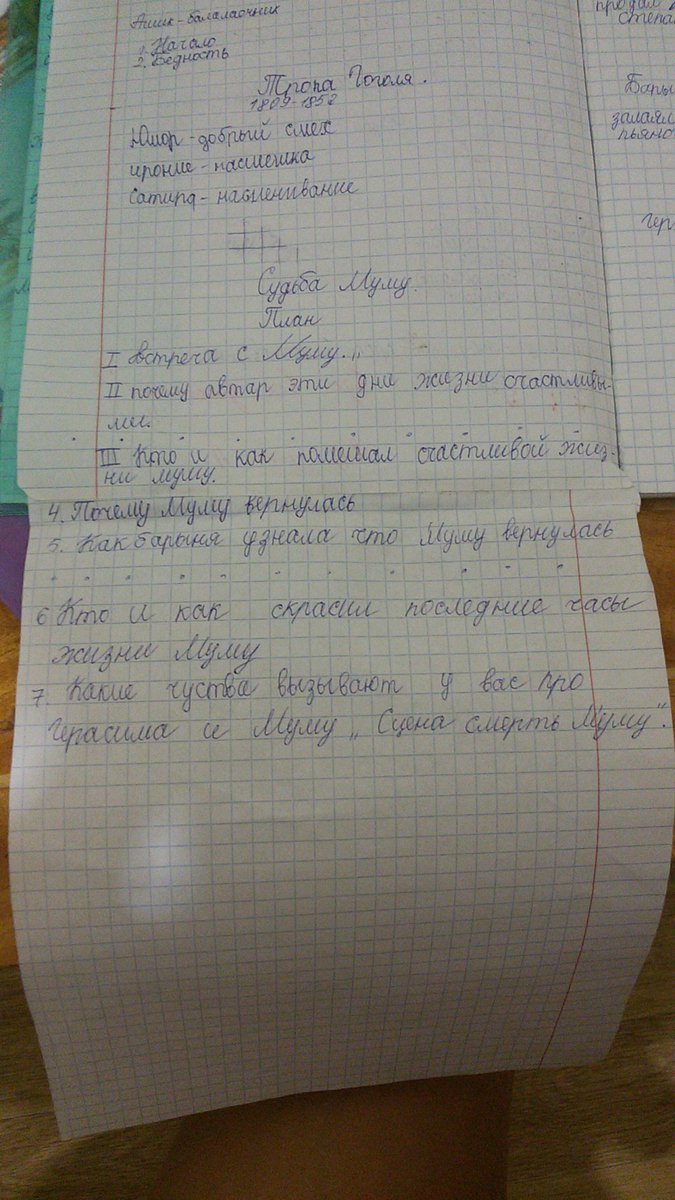 Ашик-балалаочник
1. Начало
2. Бедность
Тропа Гоголя.
1809-1852
Юмор-добрый смех
ирония-насмешка
Сатира-насмеивание
Судьба Муму.
План
I встреча с Муму.„
II почему автар эти дни жизни счастливы-
ми.
III Кто и как помешал счастливой жиз-
ни муму.
4. Почему Муму вернулась
5. Как барыня узнала что Муму вернулась
6 Кто и как скрасил последние часы
жизни Муму
7. Какие чуства вызывают у вас про
Герасима и Муму „ Сцена смерть Муму".
продал
степа
Бары
залаял
пьяно
гер